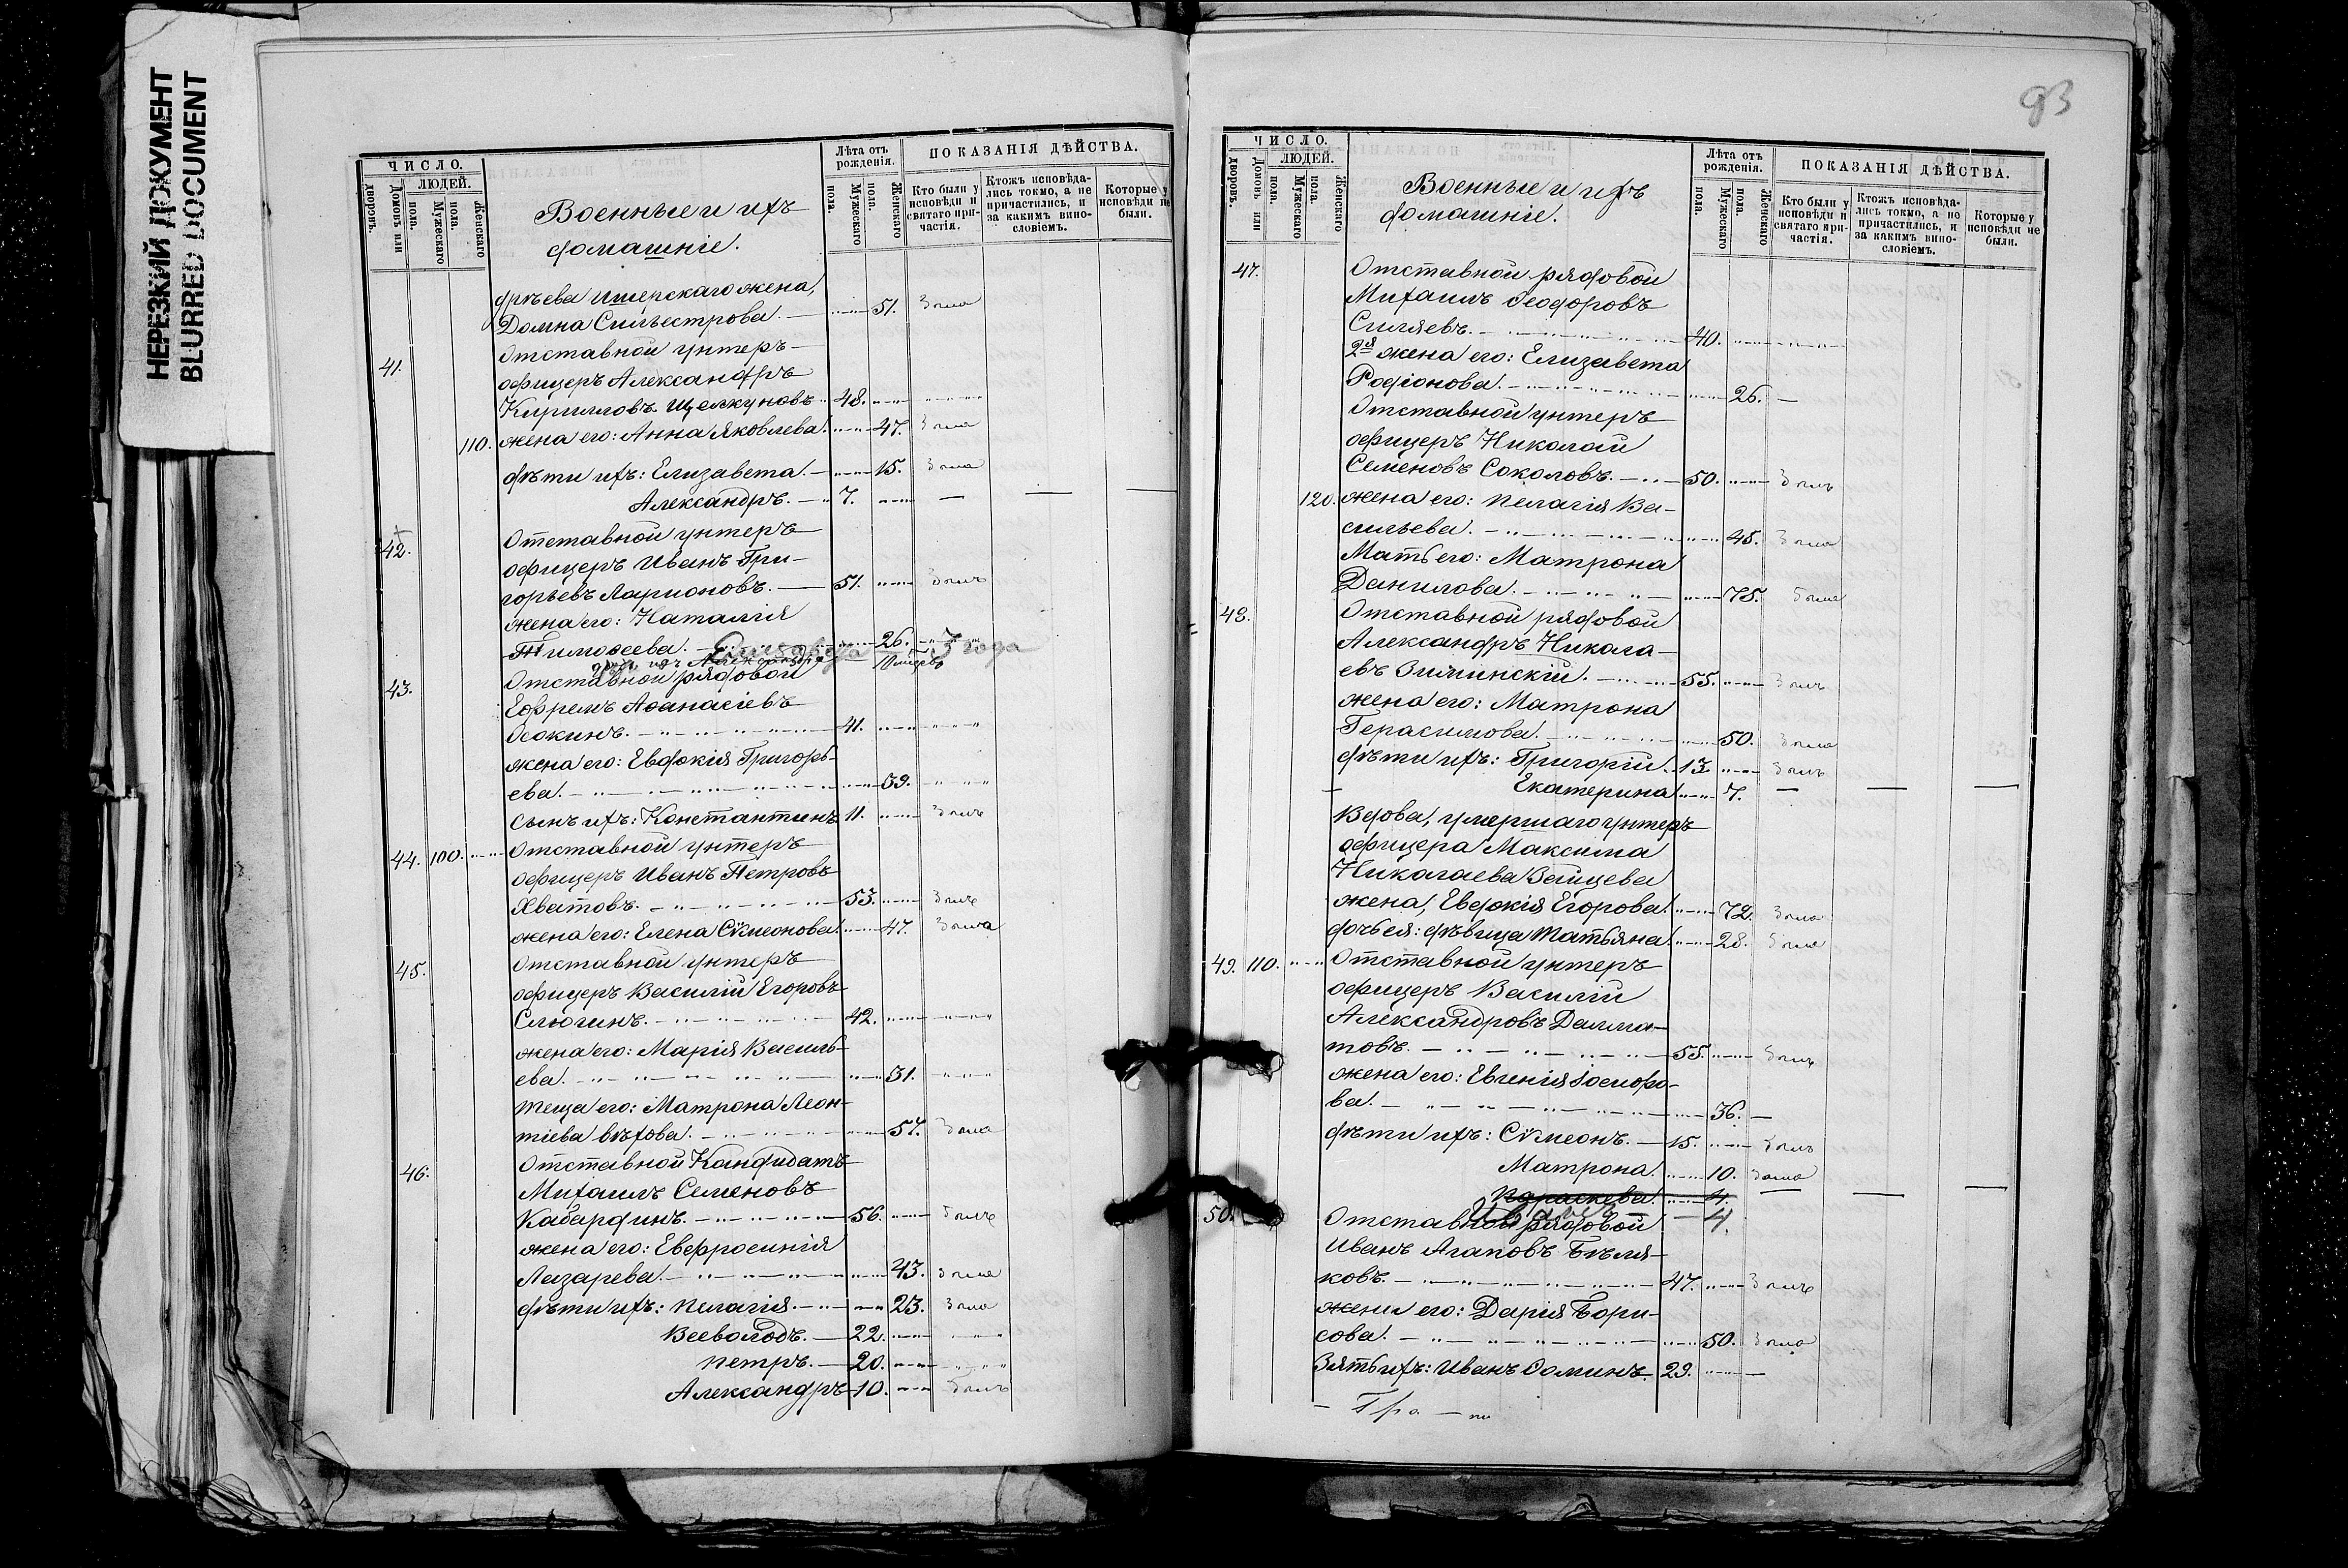 НЕРЕЗКИЙ ДОКУМЕНТ
BLURRED DOCUMENT
ЧИСЛО.
ЛЮДЕЙ.
Домовъ или дворовъ.
Мужескаго пола.
Женскаго пола.
Военные и ихъ
домашніе.
Лѣта отъ рожденія.
Мужескаго пола.
Женскаго пола.
ПОКАЗАНІЯ ДѢЙСТВА.
Кто были у исповѣди и святаго причастія.
Ктожъ исповѣдались токмо, а не причастились, и за какимъ винословіемъ.
Которые у исповѣди не были.
жена,
Домна Сильвестрова. 51. была
41. Отставной унтеръ-
офицеръ Александръ
Кирилловъ Щелкуновъ 48.
110. жена его: Анна Яковлева. 47. была
дѣти ихъ: Елизавета. 15. была
Александръ. 7. — — —
42. Отставной унтеръ
офицеръ Иванъ Гри-
горьевъ Ларионовъ. 51. былъ
жена его: Наталія
Тимофеева. 26.
Елизавета 3 года
дочь ихъ Александра
43. Отставной рядовой
Ефремъ Аѳанасіевъ
Осокинъ. 41.
жена его: Евдокія Григорь-
ева. 39.
сынъ ихъ: Константинъ 11. былъ
44. 100. Отставной унтеръ
офицеръ Иванъ Петровъ
Хватовъ. 53. былъ
жена его: Елена Сѵмеонова. 47. была
45. Отставной унтеръ
офицеръ Василій Егоровъ
Слюгинъ. 42.
жена его: Марія Василь-
ева. 31.
теща его: Матрона Леон-
тіева вдова. 57. была
46. Отставной Кандидатъ
Михаилъ Семеновъ
Кабардинъ. 56. былъ
жена его: Евфросинія
Лазарева. 43. была
дѣти ихъ: Пелагія. 23. была
Всеволодъ. 22.
Петръ. 20.
Александръ 10. былъ
93
ЧИСЛО.
ЛЮДЕЙ.
Домовъ или дворовъ.
Мужескаго пола.
Женскаго пола.
Военные и ихъ
домашніе.
Лѣта отъ рожденія.
Мужескаго пола.
Женскаго пола.
ПОКАЗАНІЯ ДѢЙСТВА.
Кто были у исповѣди и святаго причастія.
Ктожъ исповѣдались токмо, а не причастились, и за какимъ винословіемъ.
Которые у исповѣди не были.
47. Отставной рядовой
Михаилъ Ѳеодоровъ
Силяевъ. 40.
2я жена его: Елизавета
Родіонова. 26. —
Отставной унтеръ
офицеръ Николай
Семеновъ Соколовъ. 50. былъ
120. жена его: Пелагія Ва-
сильева. 45. была
Мать его: Матрона
Данилова. 75. была
48. Отставной рядовой
Александръ Никола-
евъ Зиминскій. 55. былъ
жена его: Матрона
Герасимова. 50. была
дѣти ихъ: Григорій. 13. былъ
Екатерина 7. — — —
Вдова, умершаго унтеръ
офицера Максима
Николаева Зайцева
жена, Евдокія Егорова. 72. была
дочь ея: дѣвица Татьяна. 28. была
49. 110. Отставной унтеръ
офицеръ Василій
Александровъ Далма-
товъ. 55. былъ
жена его: Евгенія Ѳеодоро-
ва. 36. —
дѣти ихъ: Сѵмеонъ. 15. былъ
Матрона. 10. была
Параскева. 4. — — —
4.
50. Отставной рядовой
Иванъ Агаповъ Бѣля-
ковъ. 47. былъ
жена его: Дарія Бори-
сова. 50. была
Зять ихъ: Иванъ Ѳоминъ. 29. —